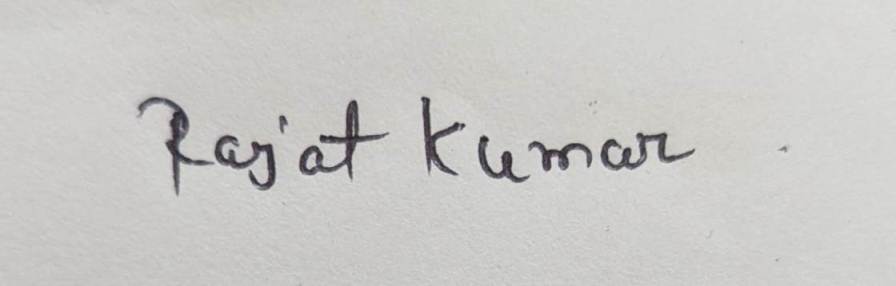 Rajat Kumar